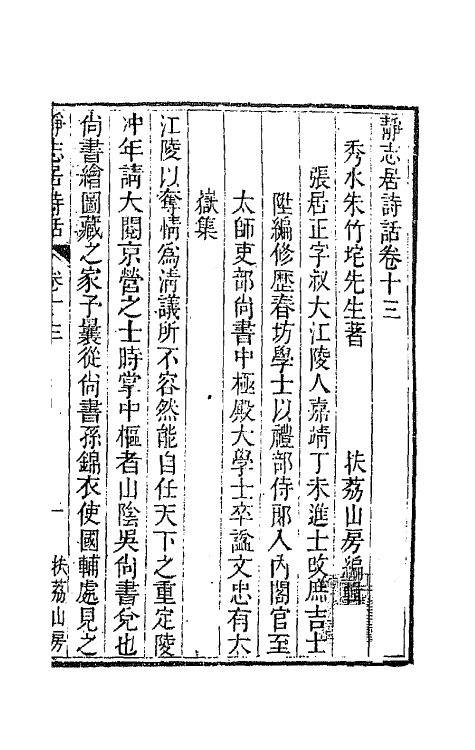 靜志居詩話卷十三
秀水朱竹垞先生著　扶荔山房編輯
張居正字叔大江陵人嘉靖丁未進士改庶吉士
陞編修歷春坊學士以禮部侍郎入內閣官至
太師吏部尚書中極殿大學士卒諡文忠有太
嶽集
江陵以奪情爲清議所不容然能自任天下之重定陵
冲年請大閱京營之士時掌中樞者山陰吳尚書兌也
尚書繪圖藏之家予曩從尚書孫錦衣使國輔處見之
靜志居詩話　卷十三　一　扶荔山房